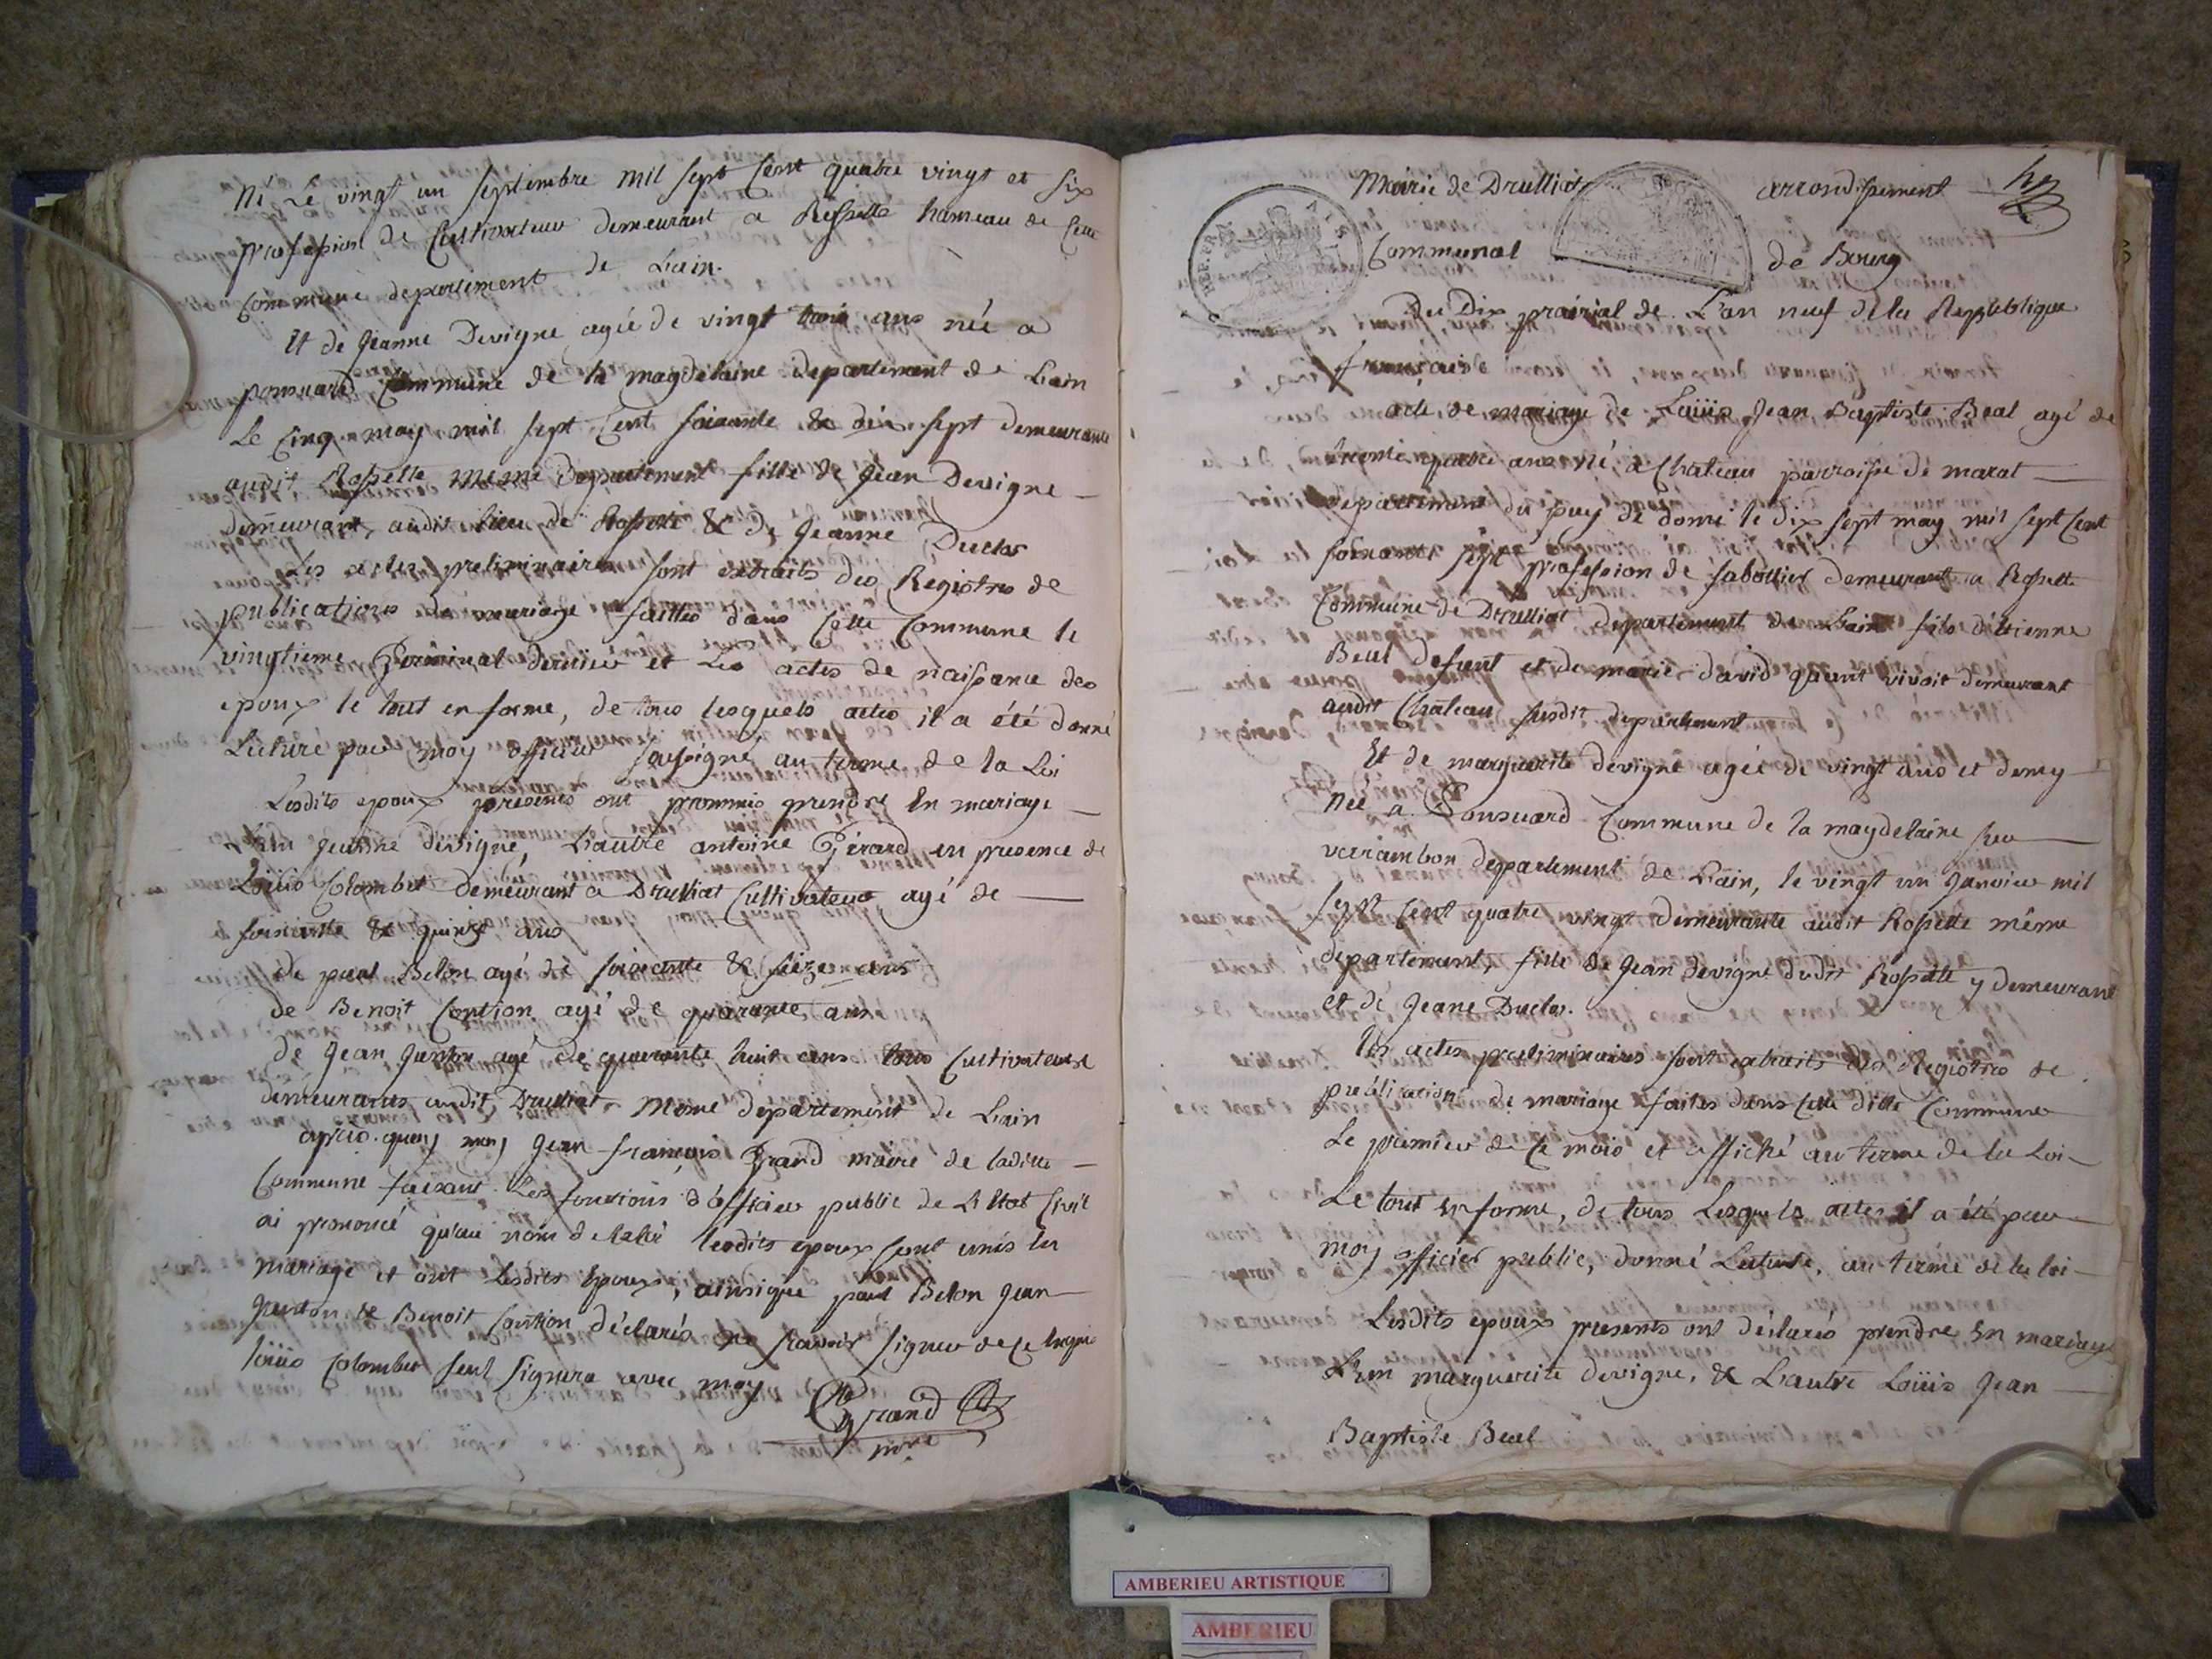 né Le vingt un septembre mil sept Cent quatre vingt et six
profession de Cultivateur demeurant a Rossette hameau de Cette
Commune departement de Lain.
Et de Jeanne Devigne agée de vingt trois ans née a
ponsuard Commune de la magdelaine departement de Lain
Le Cinq may mil sept Cent soixante & dix sept demeurante
audit Rossette meme departement fille de Jean Devigne
demeurant audit lieu de Rossette & de Jeanne Duclos
Les actes preliminaires sont extraits des Registres de
publications de mariage faittes dans Cette Commune le
vingtieme Germinal dernier et Les actes de naissance des
epoux le tout en forme, de tous lesquels actes il a été donné
Lecture par moy officier soussigné au terme de la Loi
Lesdits epoux presents ont prommis prendre En mariage
L'un Jeanne devigne, L'autre antoine Gérard en presence de
Loüis Colombet demeurant a Drulliat Cultivateur agé de
soixante & quinze ans
de paul Belon agé de soixante & seize ans
de Benoit Contion agé de quarante ans
de Jean Guston agé de quarante huit ans tous Cultivateurs
demeurants audit Drulliat meme departement de Lain
après quoy moy Jean francois Grand maire de laditte
Commune faisant Les fonctions d'officier public de L'Etat Civil
ai prononcé qu'au nom de la loi lesdits epoux sont unis En
mariage et ont Lesdits Epoux, ainsique paul Belon Jean
Guston & Benoit Contion déclarés ne scavoir signer de Ce Enquis
Loüis Colombet seul signera avec moy
Grand
mre
Mairie de Drulliat arrondissement
Communal de Bourg
Du Dix prairial de L'an neuf de la Republique
francaise
acte de mariage de Loüis Jean Baptiste Beal agé de
trente quatre ans né, a Chateau parroisse de marat
departement du puy de dome le dix sept may mil sept Cent
soixante sept profession de sabottier demeurant a Rossette
Commune de Drulliat departement de Lain fils d'étienne
Beal defunt et de marie david quant vivoit demeurant
audit Chateau susdit departement
Et de marguerite devigne agée de vingt ans et demy
née a Ponsuard Commune de la magdelaine sur
varambon departement de Lain, le vingt un janvier mil
sept Cent quatre vingt demeurante audit Rossette même
departement, fille de Jean devigne dudit Rossette y demeurant
et de Jeane Duclos.
les actes preliminaires sont extraits des Registres de
publication de mariage faites dans Cette ditte Commune
Le premier de Ce mois et affiché au terme de la Loi
Le tout En forme, de tous Lesquels actes il a été par
moy officier public, donné Lecture, au terme de la loi
Lesdits epoux presents ont déclarés prendre En mariage
L'un marguerite devigne, & L'autre Loüis Jean
Baptiste Beal
AMBERIEU ARTISTIQUE
AMBERIEU